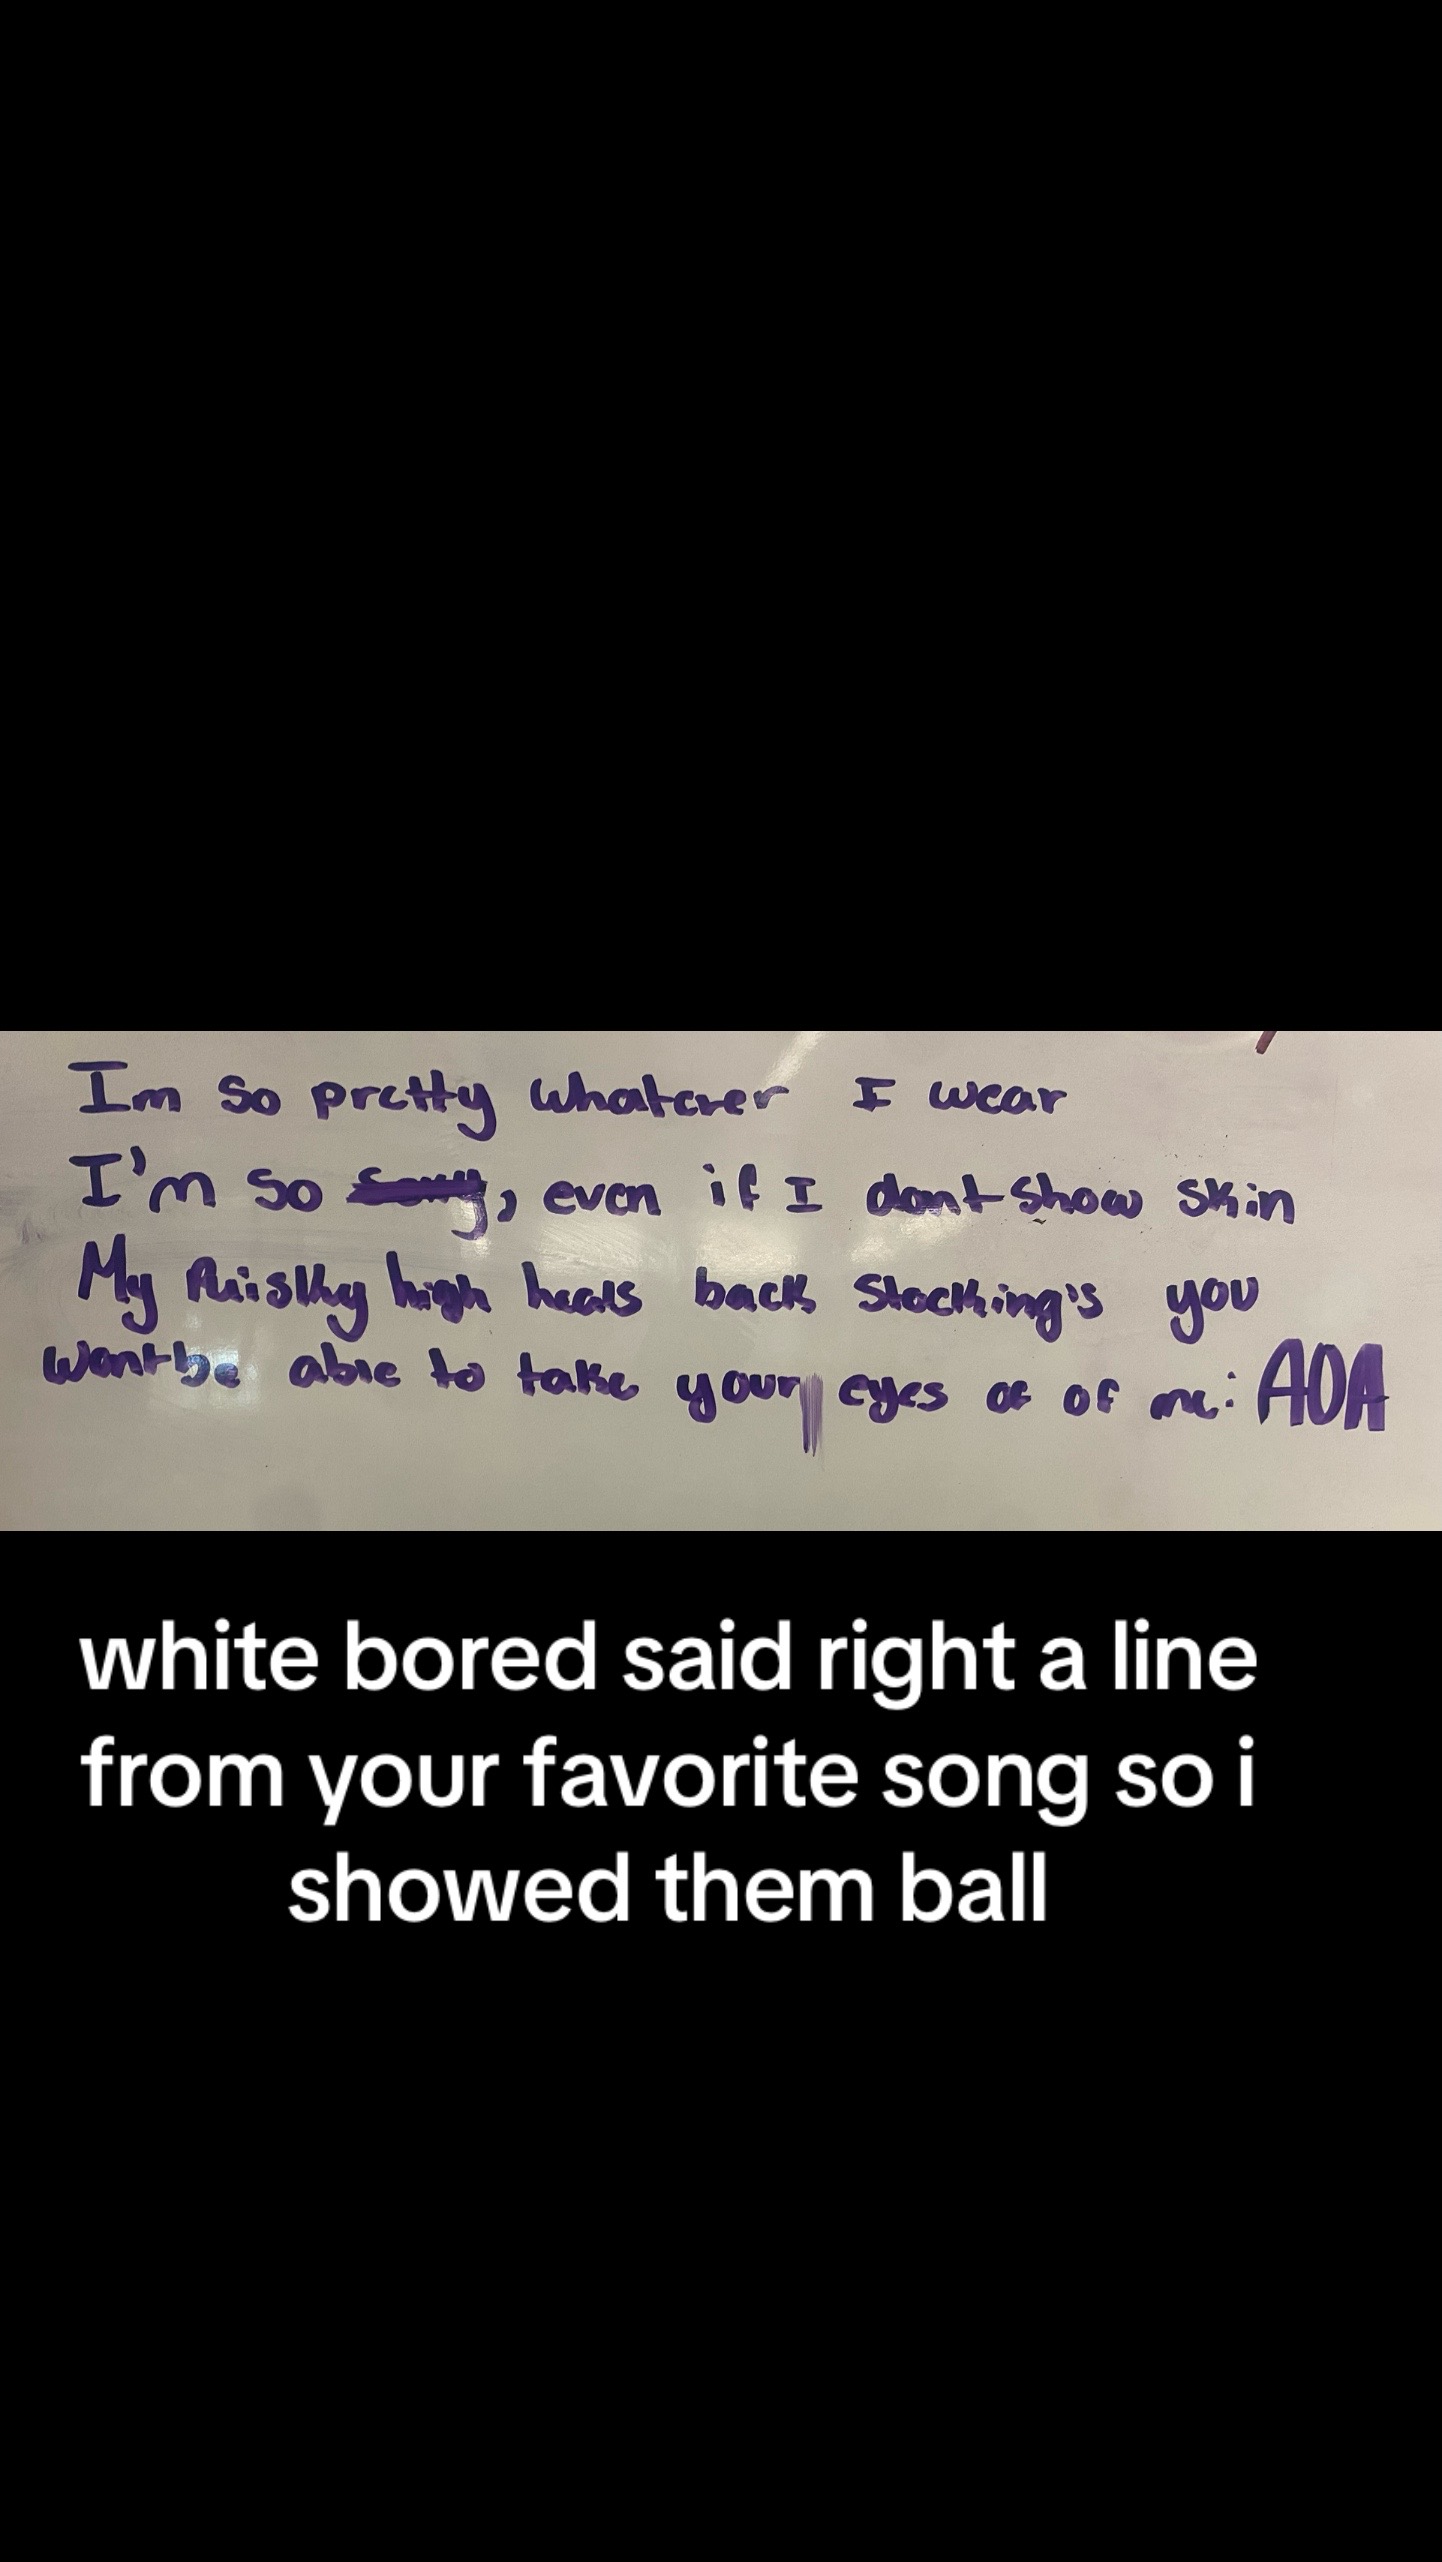 Im so pretty whatever I wear
I'm so , even if I dont show skin
My high heals back stocking's you
wont be able to take your eyes of of me: AOA
white bored said right a line
from your favorite song so i
showed them ball